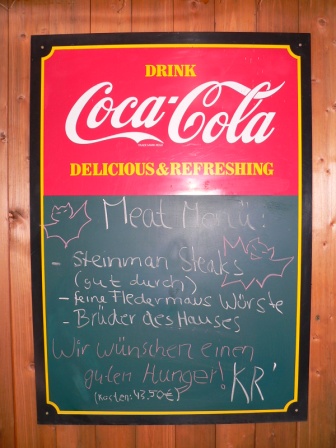 DRINK
Coca-Cola
DELICIOUS & REFRESHING
Meat Menü:
- Steinman Steaks
(gut durch)
- feine Fledermaus Würste
- Brüder des Hauses
Wir wünschen einen
guten Hunger!
KR'
(Kosten: 43,50€)